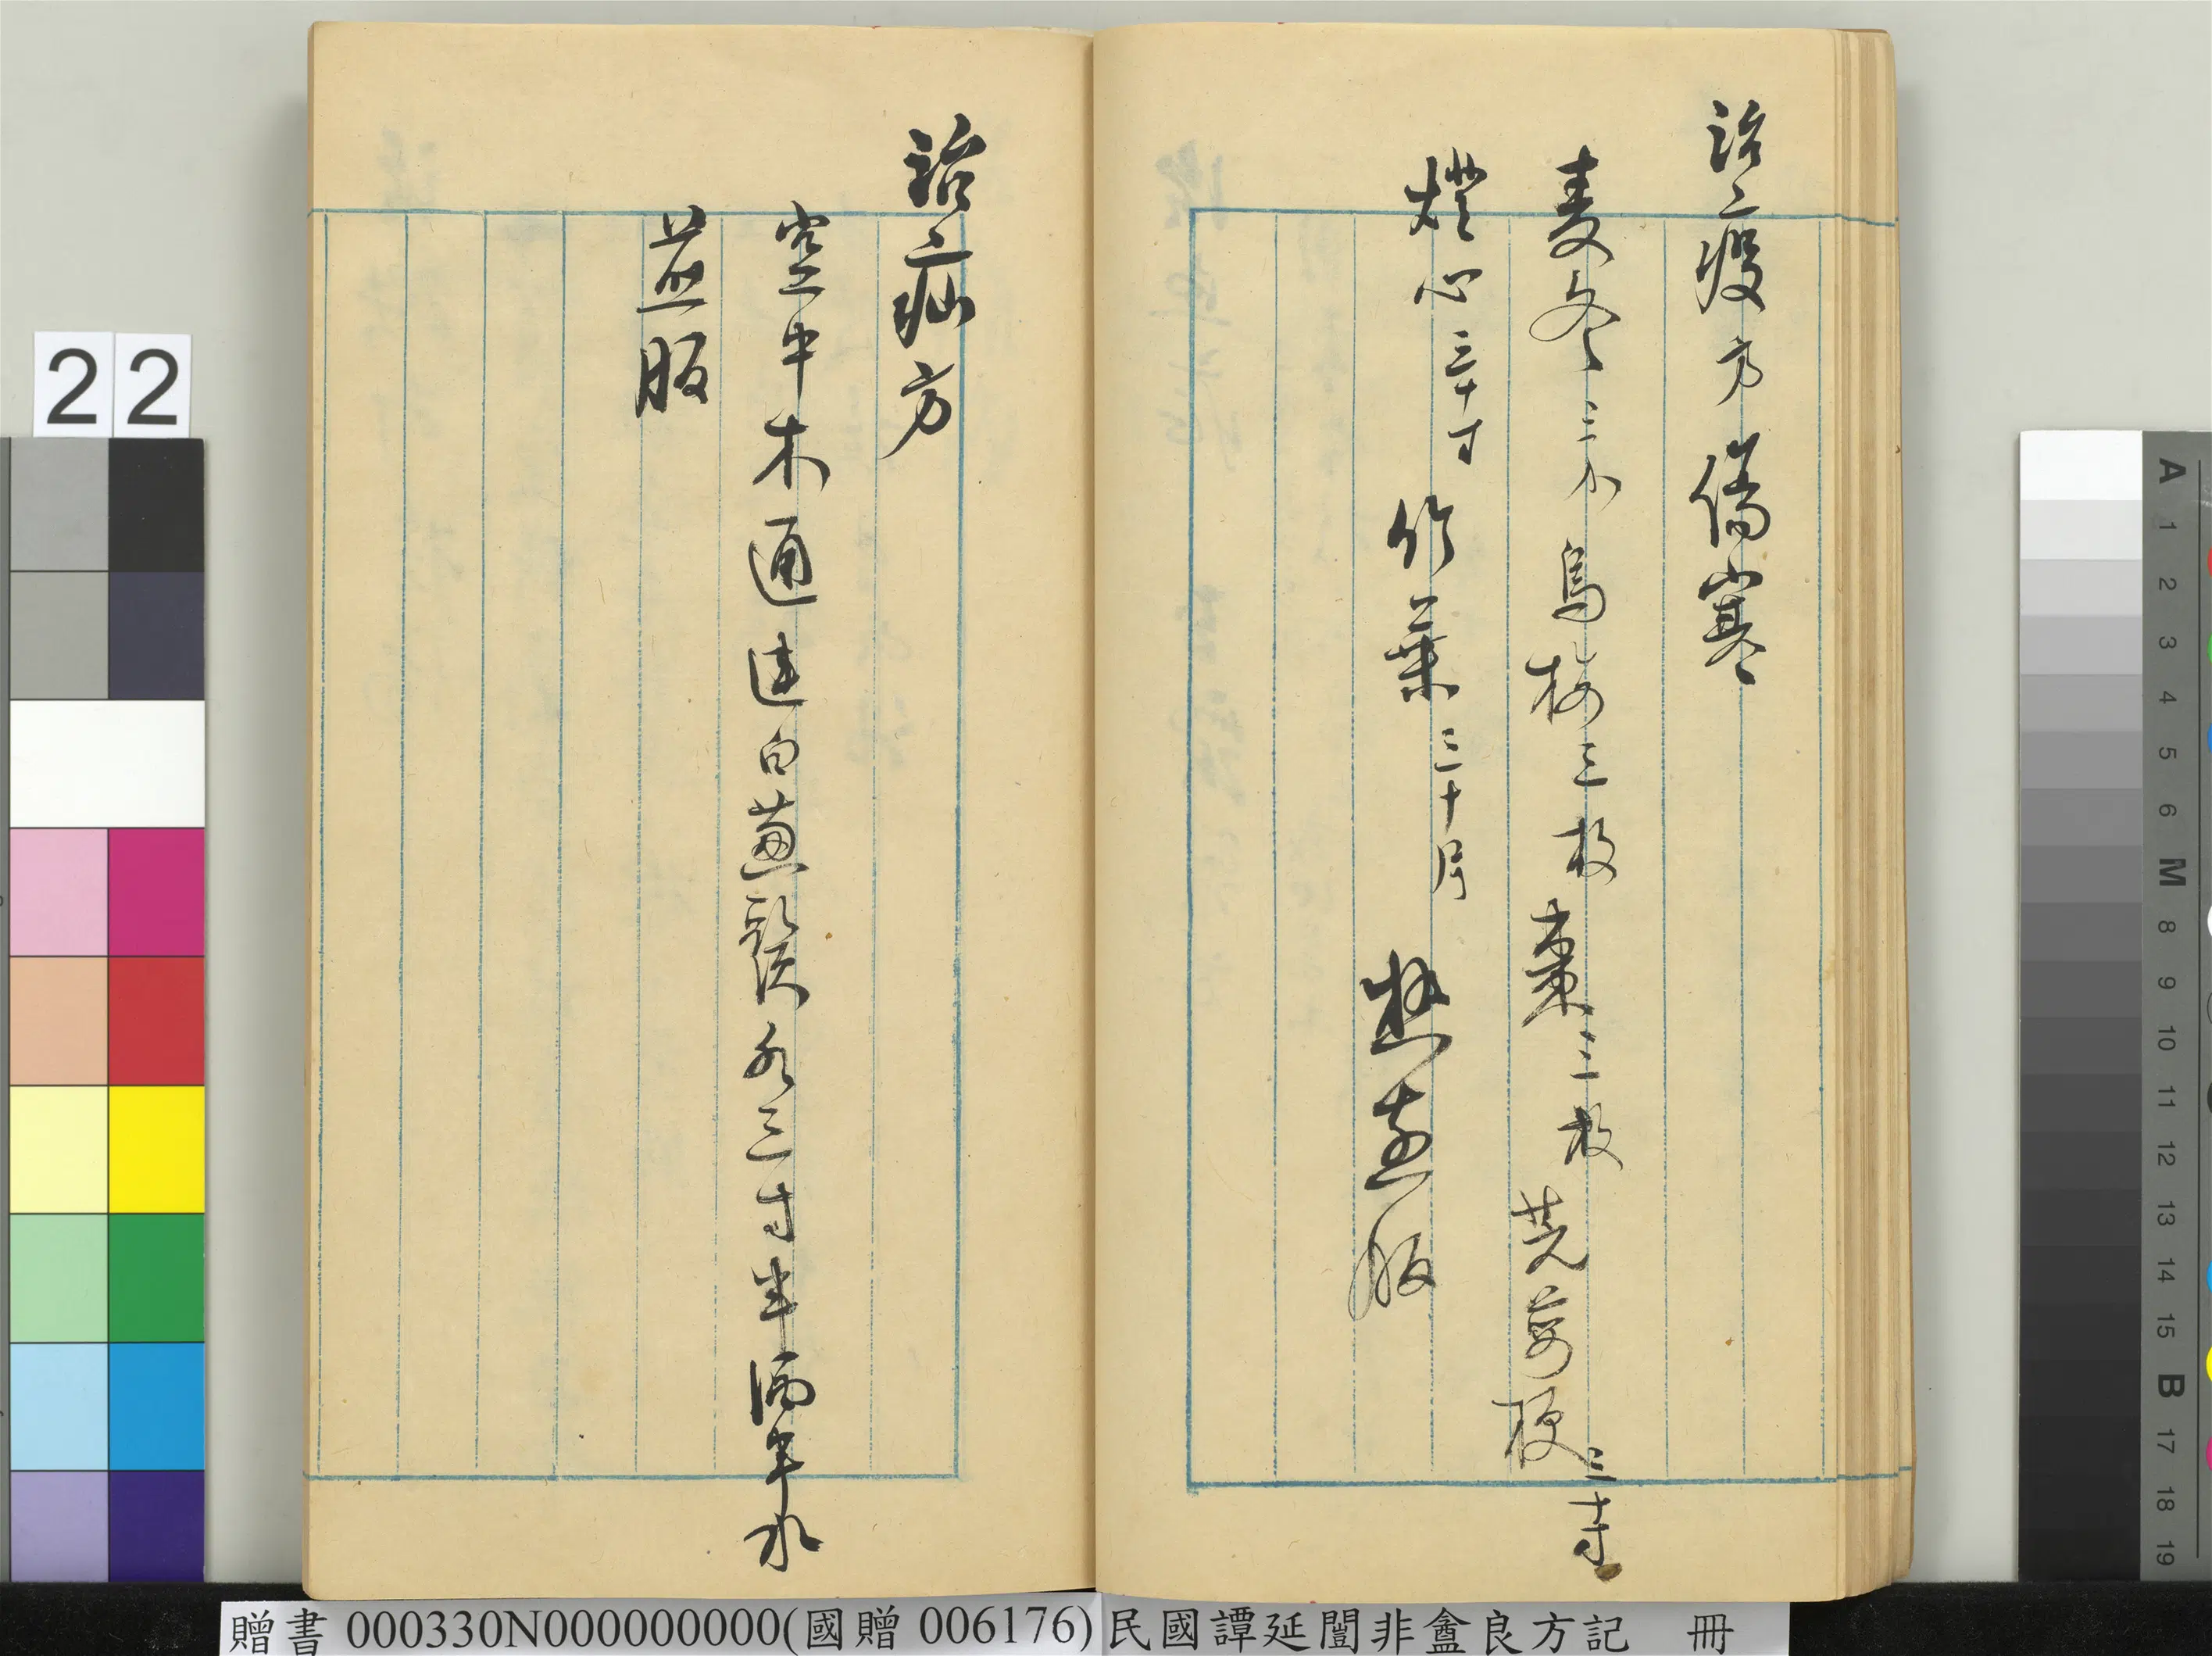 治疫方 傷寒
麥冬三分 烏梅三枚 棗三枚 芫荽梗三寸
燈心三十寸 竹葉三十片 服
治疝方
空中木通連白蔥鬚各三寸半酒半水
煎服
22
A 1 2 3 4 5 6 M 8 9 10 11 12 13 14 15 B 17 18 19
贈書 000330N000000000(國贈 006176) 民國譚延闓非盦良方記 冊